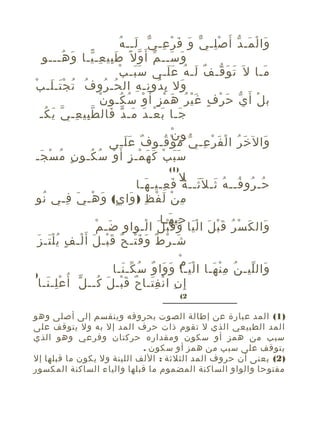 وَالْمَـدُّ أَصْلِـيٌّ وَ فَرْعِـيٌّ لَـهُ
وَسَــمِّ أَوَّلاً طَبِيعِـيًّـا وَهُـــو
مَـا لاَ تَوَقُّـفٌ لَـهُ عَلَـى سَبَـبْ
وَلا بِدُونِـهِ الحُـرُوفُ تُجْتَـلَـبْ
بلْ أَيُّ حَرْفٍ غَيْرُ هَمْزٍ أَوْ سُكُـونْ
جَـا بَعْـدَ مَـدٍّ فَالطَّبِيعِـيَّ يَكُـونْ
وَالآخَرُ الْفَرْعِـيُّ مَوْقُـوفٌ عَلَـى
سَبَبْ كَهَمْـزٍ أَوْ سُكُـونٍ مُسْجَـلا
(1)
حُـرُوفُــهُ ثَـلاَثَــةٌ فَعِيـهَـا
مِنْ لَفْظِ (وَايٍ) وَهْـيَ فِـي نُوحِيهَـا
وَالكَسْرُ قَبْلَ الْيَا وَقَبْلَ الْـواوِ ضَـمْ
شَـرْطٌ وَفَتْـحٌ قَبْـلَ أَلْـفٍ يُلْتَـزَمْ
وَاللِّيـنُ مِنْهَـا الْيَـا وَوَاوٌ سُكِّـنَـا
إِنِ انْفِتَـاحٌ قَبْـلَ كُــلٍّ أُعْلِـنَـا
(2)
(1) المد عبارة عن إطالة الصوت بحروفه وينقسم إلى أصلى وهو
المد الطبيعي الذي لا تقوم ذات حرف المد إلا به ولا يتوقف على
سبب من همز أو سكون ومقداره حركتان وفرعي وهو الذي
يتوقف على سبب من همز أو سكون .
(2) يعنى أن حروف المد الثلاثة : الألف اللينة ولا يكون ما قبلها إلا
مفتوحا والواو الساكنة المضموم ما قبلها والياء الساكنة المكسور